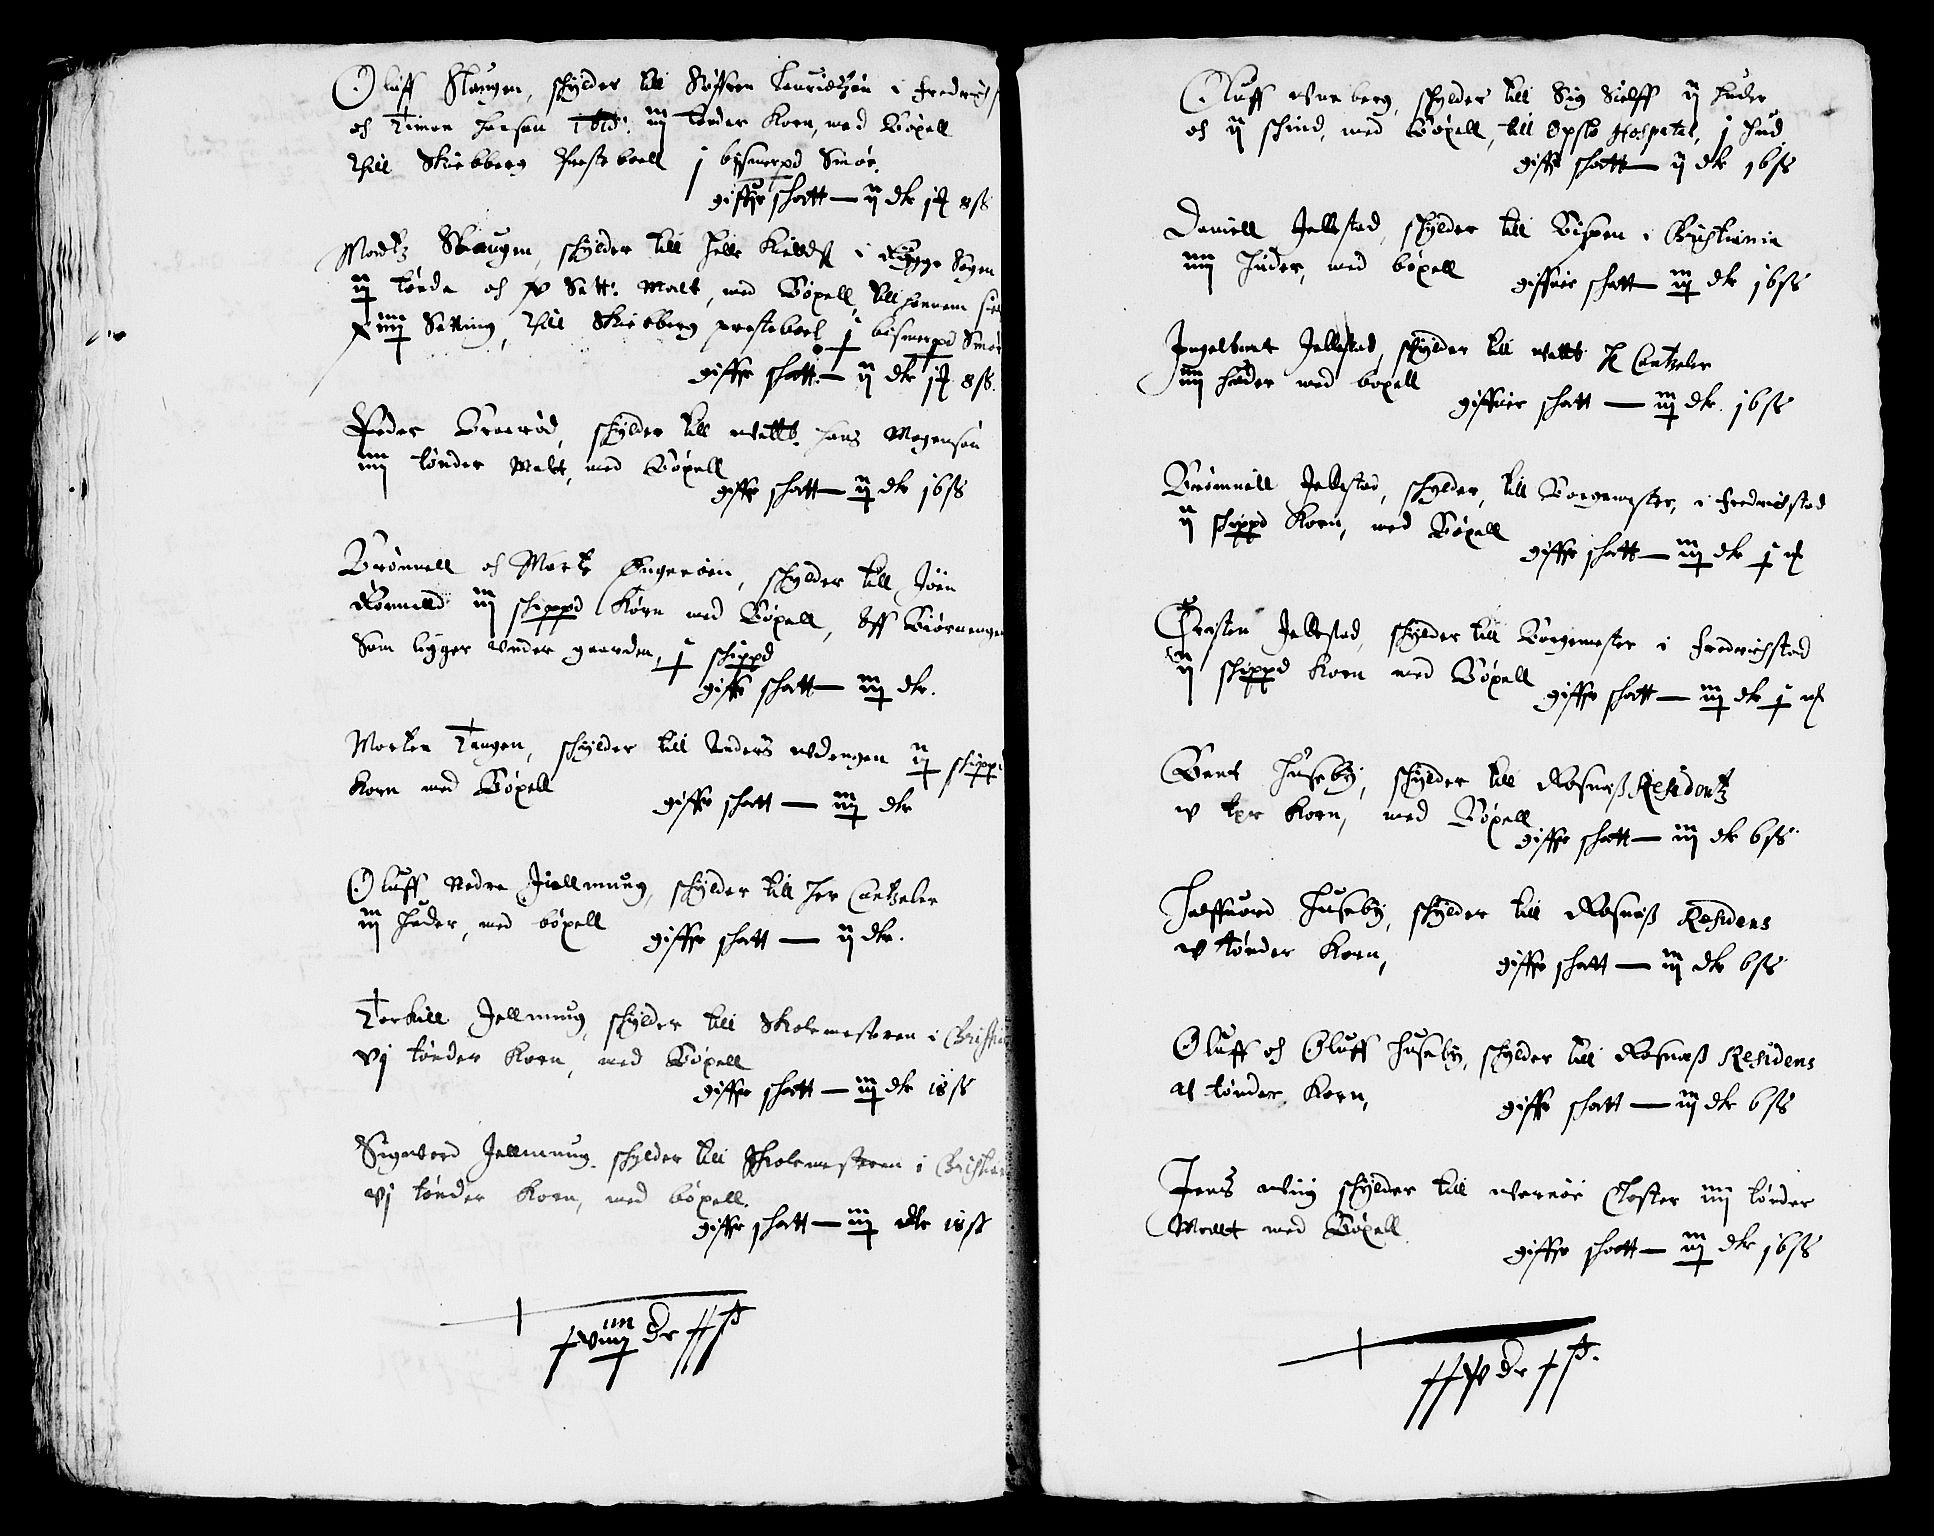 Oluff Skaugen, schylder till Søffren Lauridtzøn i Fredrich
och Timon Hansen Ibid: iiij tønder Korn, med Bøxell
Till Skiebberg Presteboell j bismerpd Smør,
giffr schatt — ij dlr j ₰ 8 ß
Morttz Skaugen, schylder till Helle Kieldst i Rygge Sogen
ij tønde och xv Sett: Malt, med Bøxell, till hannem siel
Setting, Till Skiebberg presteboel j bismerpd Smør
giffr schatt — ij dlr j ₰ 8 ß.
Peder Braerød, schylder till welb. Hans Mogensøn
iiij tønder Malt, med Bøxell
giffr schatt — ij dlr 16 ß
Brønnell och Mortt Engerøen, schylder till Jøen
iij schippd Korn med Bøxell, Aff Biørnengen
Som ligger vnder gaarden, j schippd
giffr schatt — iij dlr.
Morten Tangen, schylder till Anders wdengen ij schippd
Korn med Bøxell
giffr schatt — iij dlr
Oluff Nedre Jellmung, schylder till Her Cantzeler
iij Huder, med bøxell
giffr schatt — ij dlr.
Torkill Jellmung, schylder till Skolemesteren i Christia
vj tønder Korn, med Bøxell
giffr schatt — iij dlr 18 ß
Sigword Jellmung, schylder till Skolemesteren i Christian
vj tønder Korn, med bøxell.
giffr schatt — iij dlr 18 ß
dr ß
Oluff schylder till Sig Sielff ij huder
och ij schind, med Bøxell, till Opslo Hospital, j hud
giffr schatt — ij dlr 16 ß
Daniell Jellestad, schylder till Bispen i Christiania
iiij Huder, med bøxell
giffuir schatt — iij dlr 16 ß
Ingelbret Jellestad, schylder till welb: H Cantzeler
iiij huder med boxell
giffuir schatt — iij dlr. 16 ß
Brønnell Jellestad, schylder, till Borgemester, i Fredrichstad
ij schippd Korn, med Bøxell
giffr schatt — iij dlr j ₰
Cristen Jellestad, schylder till Borgemester i Fredrichstad
ij schippd Korn med Bøxell
giffr schatt — iij dlr j ₰
Bent Huseby, schylder till Rosnæß Residentz
v tpr Korn, med Bøxell
giffr schatt — iij dlr 6 ß
Haffuord Huseby, schylder till Rosnæß Residens
v tønder Korn,
giffr schatt — iij dlr 6 ß
Oluff och Oluff Huseby, schylder till Rosnæß Residens
tønder Korn,
giffr schatt — iij dlr 6 ß
Jens Wiig schylder till Wernøe Closter iiij tønder
Malt med Bøxell
giffr schatt — iij dlr 16 ß
dr ß.